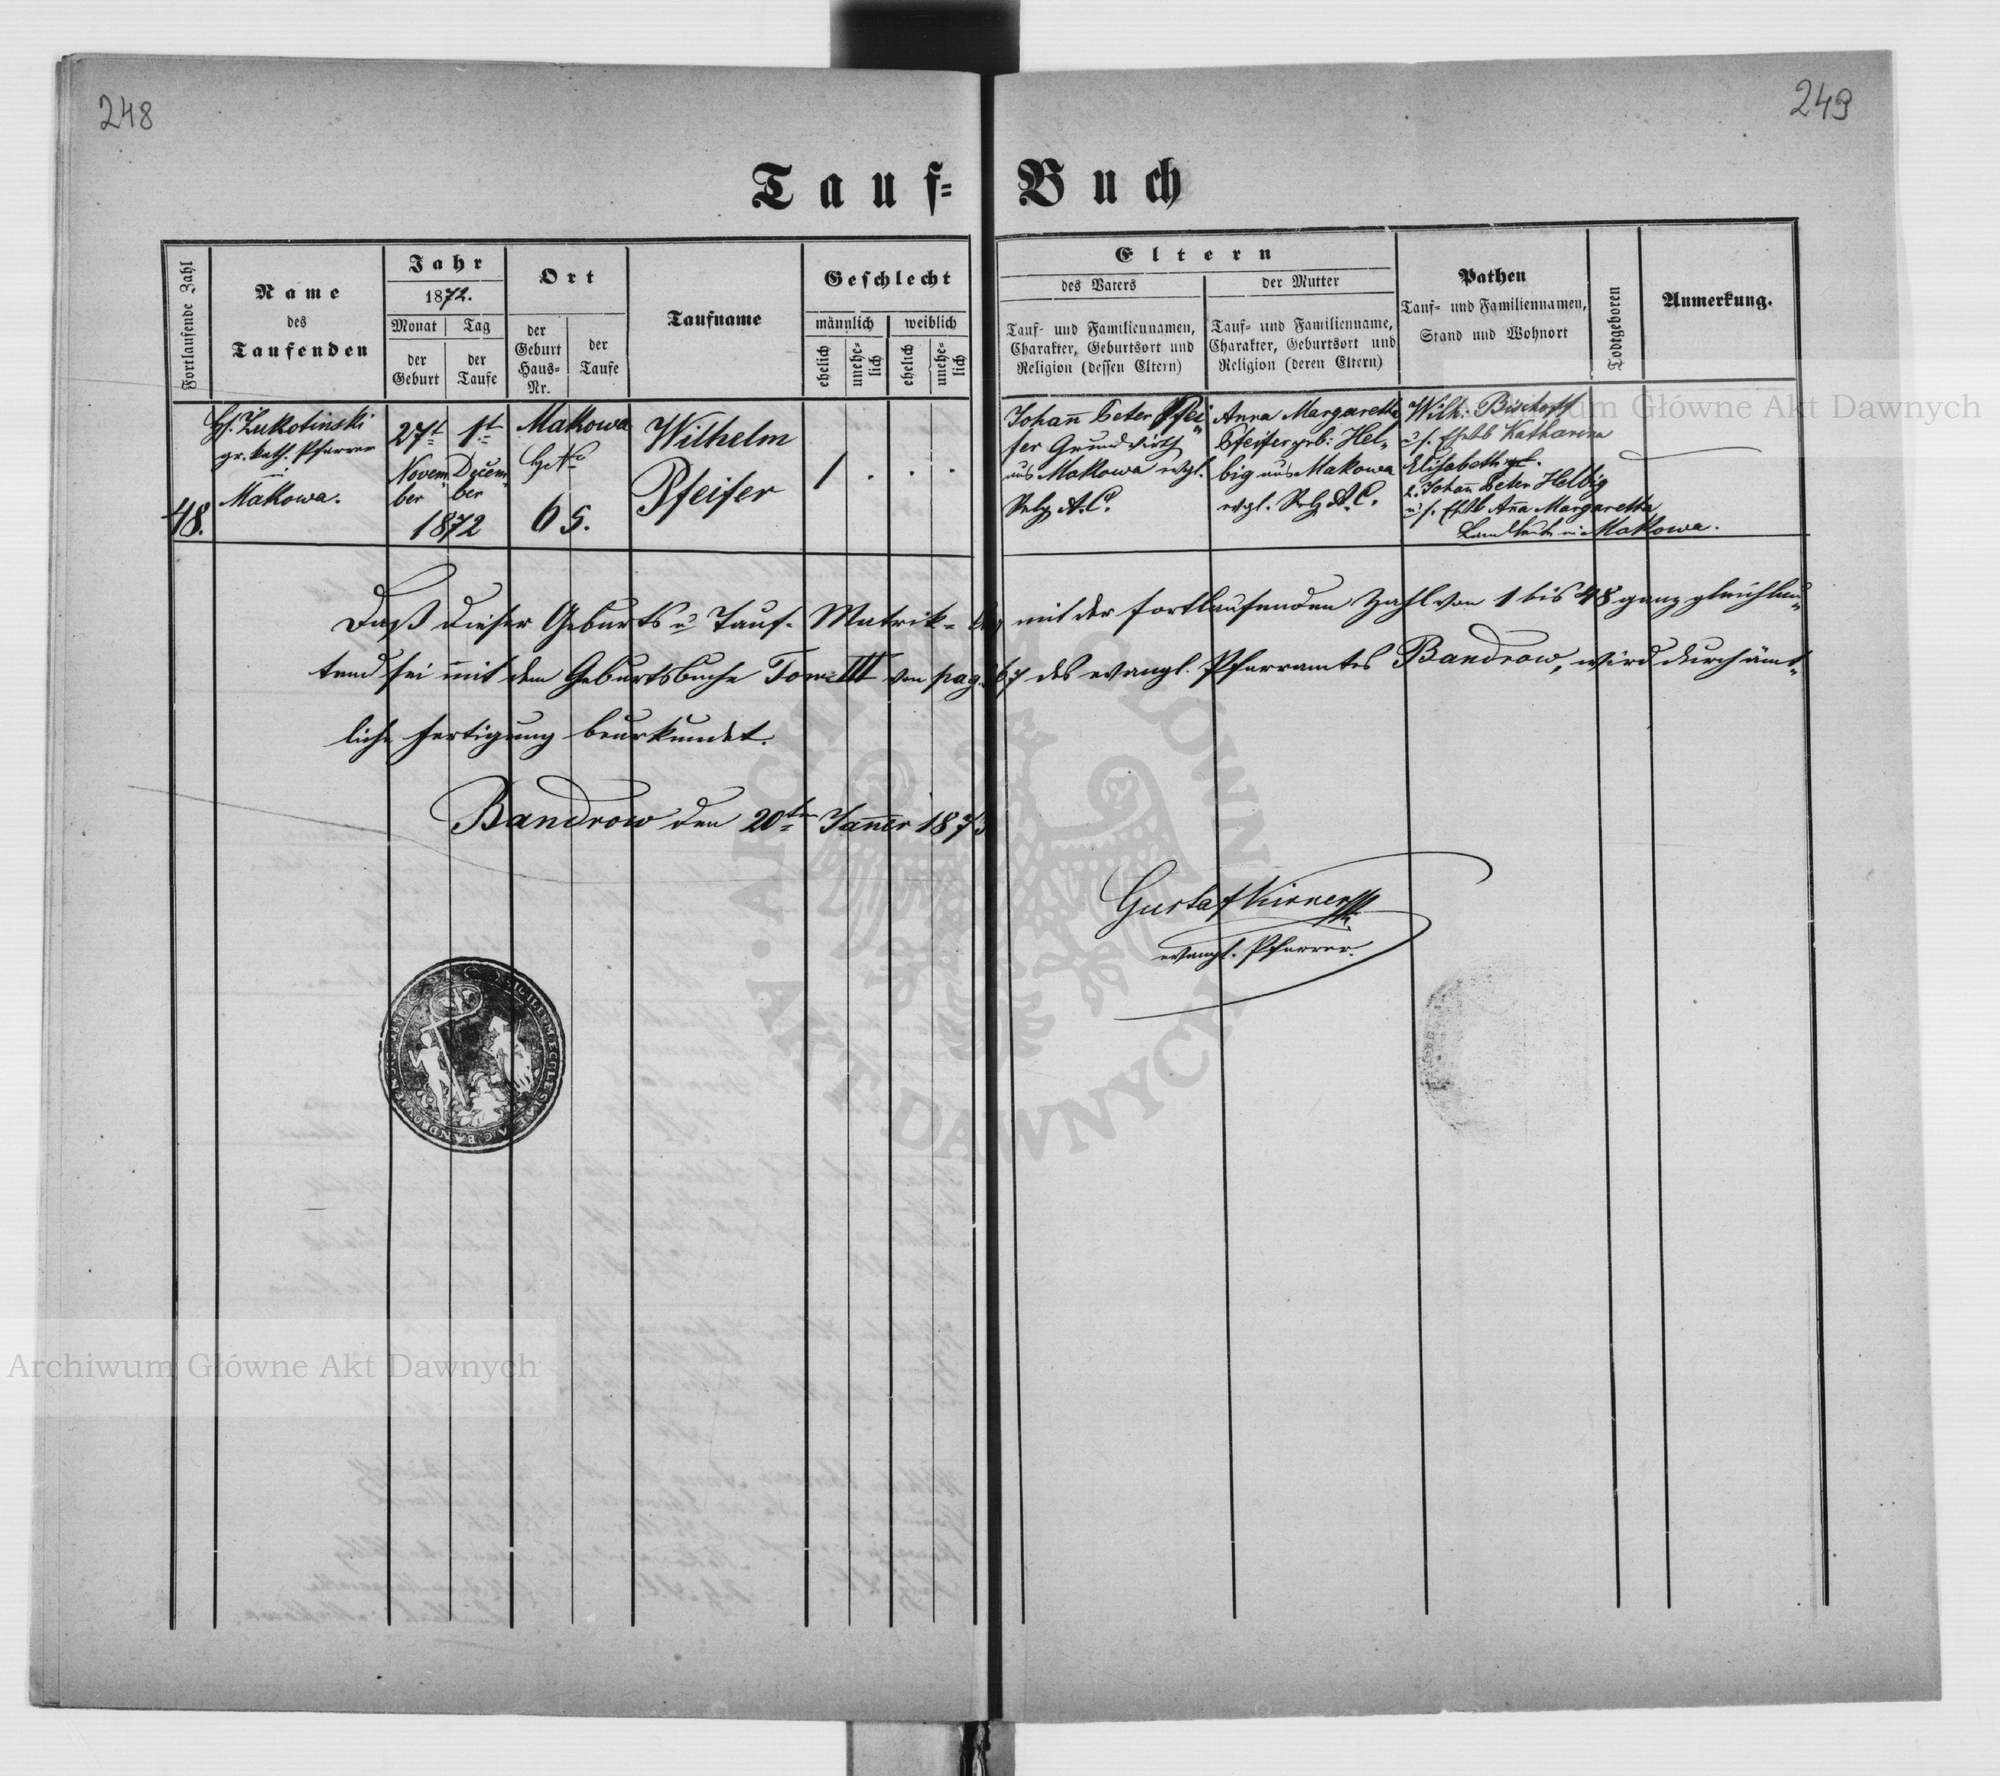 248
249
Tauf-Buch
Fortlaufende Zahl
Name
des
Taufenden
Jahr
1872.
Monat
Tag
der
Geburt
der
Taufe
Ort
der
Geburt
Haus-
Nr.
der
Taufe
Taufname
Geschlecht
männlich
weiblich
ehelich
unehe-
lich
ehelich
unehe-
lich
Eltern
des Vaters
der Mutter
Tauf- und Familiennamen,
Charakter, Geburtsort und
Religion (dessen Eltern)
Tauf- und Familienname,
Charakter, Geburtsort und
Religion (deren Eltern)
Pathen
Tauf- und Familiennamen,
Stand und Wohnort
Todtgeboren
Anmerkung.
48.
H. Zukotinski
gr. kath. Pfarrer
in
Makowa.
27t
Novem
ber
1st
Decem
ber
1872
Makowa
65.
Wilhelm
Pfeifer
1
Johann Peter Pfei
fer Grundwirth
aus Makowa evgl.
Relg A. C.
Anna Margaretha
Pfeifer geb. Hel-
big aus Makowa
evgl. Relg A. C.
Wilh. Bischoff
u. s. Ehelb Katharina
Elisabeth
2. Johann Peter Helbig
u. s. Ehlb Anna Margaretha
Landleute in Makowa.
Daß dieser Geburts u Tauf-Matrik- mit der fortlaufenden Zahl von 1 bis 48 ganz gleichlau
tend sei mit dem Geburtsbuche Tom III von pag. 67 des evangl. Pfarramtes Bandrow, wird durch ämt-
liche Fertigung beurkundet.
Bandrow den 20ten Janner 1873
Gustaf Kirner
evangl. Pfarrer.
Archiwum Główne Akt Dawnych
ARCHIWUM GŁÓWNE AKT DAWNYCH
Archiwum Główne Akt Dawnych